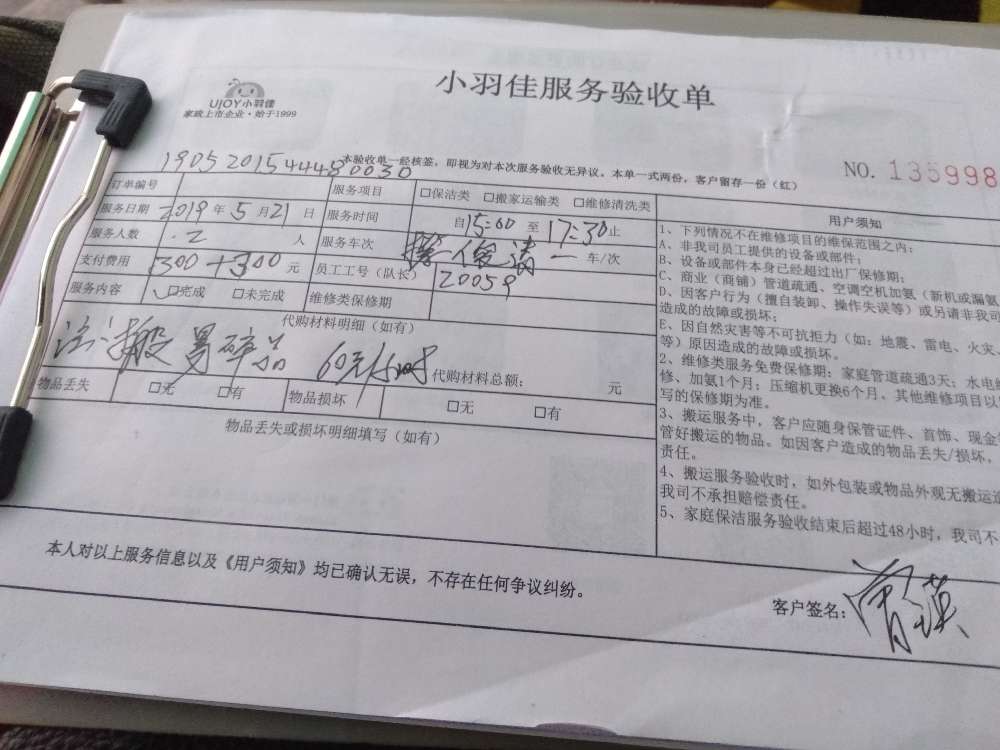 小羽佳服务验收单
UJOY小羽佳
家政上市企业·始于1999
本验收单一经核签，即视为对本次服务验收无异议。本单一式两份，客户留存一份（红）
NO. 135998
19052015444480030
订单编号 服务项目 □保洁类 □搬家运输类 □维修清洗类
服务日期 2019 年 5 月 21 日 服务时间 自 15:00 至 17:30 止
服务人数 2 人 服务车次 一 车/次
支付费用 300+300 元 员工工号（队长） 20059
服务内容 □完成 □未完成 维修类保修期
代购材料明细（如有）
60元/小时 代购材料总额： 元
物品丢失 □无 □有 物品损坏 □无 □有
物品丢失或损坏明细填写（如有）
用户须知
1、下列情况不在维修项目的维保范围之内：
A、非我司员工提供的设备或部件；
B、设备或部件本身已经超过出厂保修期；
C、商业（商铺）管道疏通、空调空机加氨（新机或漏氨
D、因客户行为（擅自装卸、操作失误等）或另请非我司
造成的故障或损坏；
E、因自然灾害等不可抗拒力（如：地震、雷电、火灾、
等）原因造成的故障或损坏。
2、维修类服务免费保修期：家庭管道疏通3天；水电维
修、加氨1个月；压缩机更换6个月、其他维修项目以
写的保修期为准。
3、搬运服务中，客户应随身保管证件、首饰、现金
管好搬运的物品。如因客户造成的物品丢失/损坏，
责任。
4、搬运服务验收时，如外包装或物品外观无搬运
我司不承担赔偿责任。
5、家庭保洁服务验收结束后超过48小时，我司不
本人对以上服务信息以及《用户须知》均已确认无误，不存在任何争议纠纷。
客户签名：